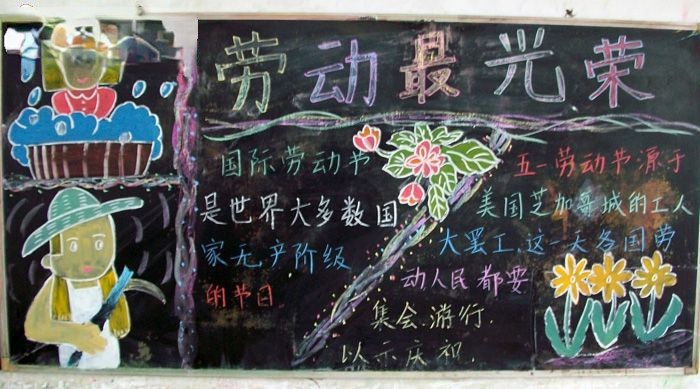 劳动最光荣
国际劳动节
是世界大多数国
家无产阶级
的节日
五一劳动节源于
美国芝加哥城的工人
大罢工.这一天各国劳
动人民都要
集会.游行.
以示庆祝.